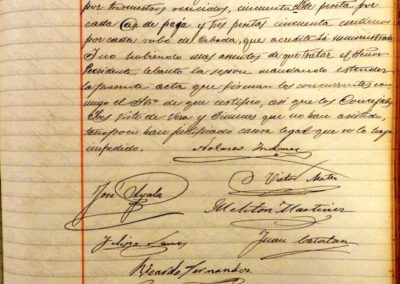 por suministros vecinales, cincuenta de peseta por
cada Cap de paja y tres pesetas cincuenta centimos
por cada robo de Cebada, que acredita la administra
Y no habiendo mas asuntos de que tratar el Señor
Presidente lebanto la sesion mandando estender
la presente acta que firman los concurrentes con
migo el Srio de que certifico, asi que los Concejales
Sres Viste de Vera y Jimenez que no han asistido,
tampoco han justificado causa legal que se lo haya
impedido.
José Ayala
Victor Mateo
Meliton Martinez
Felipe
Juan Catatan
Ricardo Fernandez